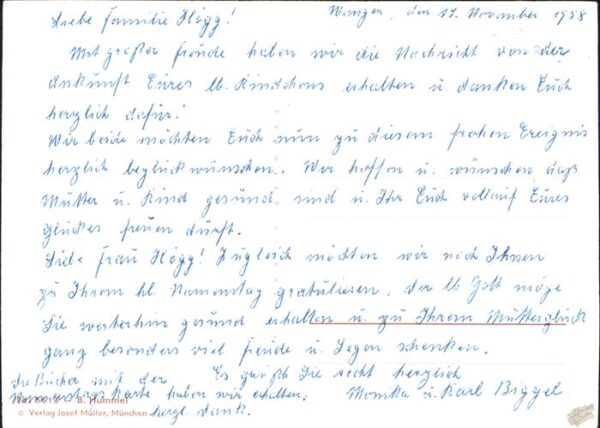 Wangen, den 17. November 1958
Liebe Familie Högg!
Mit großer Freude haben wir die Nachricht von der
Ankunft Eures lb. Kindchens erhalten u. danken Euch
herzlich dafür!
Wir beide möchten Euch nun zu diesem frohen Ereignis
herzlich beglückwünschen. Wir hoffen u. wünschen, daß
Mutter u. Kind gesund sind u. Ihr Euch vollauf Eures
Glückes freuen dürft.
Liebe Frau Högg! Zugleich möchten wir noch Ihnen
zu Ihrem hl. Namenstag gratulieren. Der lb. Gott möge
Sie weiterhin gesund erhalten u. zu Ihrem Mutterglück
ganz besonders viel Freude u. Segen schenken.
Es grüßt Sie recht herzlich
Monika u. Karl Biggel
Die Bücher mit der
Namenstagskarte haben wir erhalten.
herzl. Dank.
B. Hummel
© Verlag Josef Müller, München